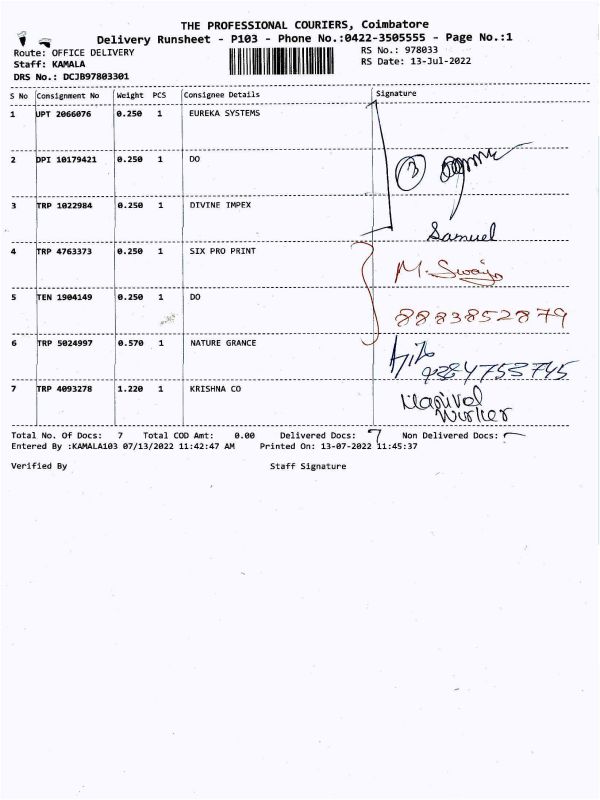 THE PROFESSIONAL COURIERS, Coimbatore
Delivery Runsheet - P103 - Phone No.:0422-3505555 - Page No.:1
Route: OFFICE DELIVERY RS No.: 978033
Staff: KAMALA RS Date: 13-Jul-2022
DRS No.: DCJB97803301
S No Consignment No Weight PCS Consignee Details Signature
1 UPT 2066076 0.250 1 EUREKA SYSTEMS
2 DPI 10179421 0.250 1 DO 3
3 TRP 1022984 0.250 1 DIVINE IMPEX
Samuel
4 TRP 4763373 0.250 1 SIX PRO PRINT
5 TEN 1904149 0.250 1 DO 8883852879
6 TRP 5024997 0.570 1 NATURE GRANCE
9384753745
7 TRP 4093278 1.220 1 KRISHNA CO
Worker
Total No. Of Docs: 7 Total COD Amt: 0.00 Delivered Docs: 7 Non Delivered Docs:
Entered By :KAMALA103 07/13/2022 11:42:47 AM Printed On: 13-07-2022 11:45:37
Verified By Staff Signature